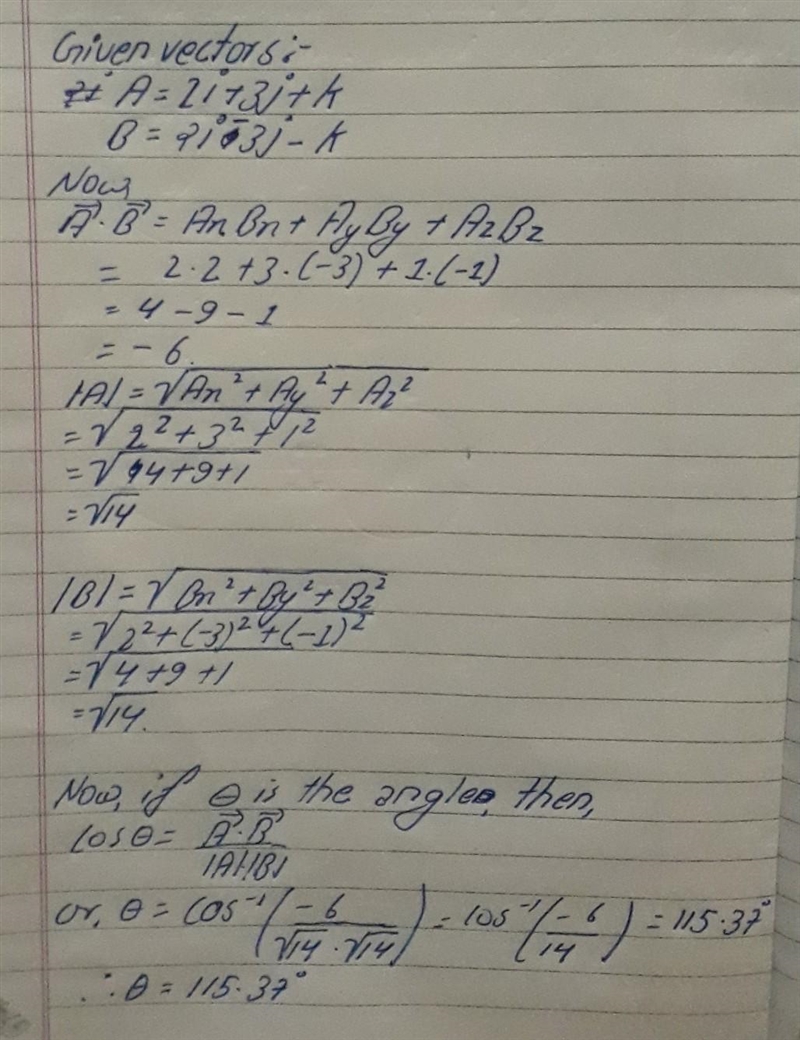 Given vectors:-
A = 2i + 3j + k
B = 2i - 3j - k
Now,
A⃗·B⃗ = AxBx + AyBy + AzBz
= 2·2 + 3·(-3) + 1·(-1)
= 4 - 9 - 1
= -6.
|A| = √(Ax² + Ay² + Az²)
= √(2² + 3² + 1²)
= √(4 + 9 + 1)
= √14
|B| = √(Bx² + By² + Bz²)
= √(2² + (-3)² + (-1)²)
= √(4 + 9 + 1)
= √14.
Now, if θ is the angle, then,
cosθ = A⃗·B⃗ / |A||B|
or, θ = cos⁻¹(-6 / √14·√14) = cos⁻¹(-6/14) = 115.37°
∴ θ = 115.37°